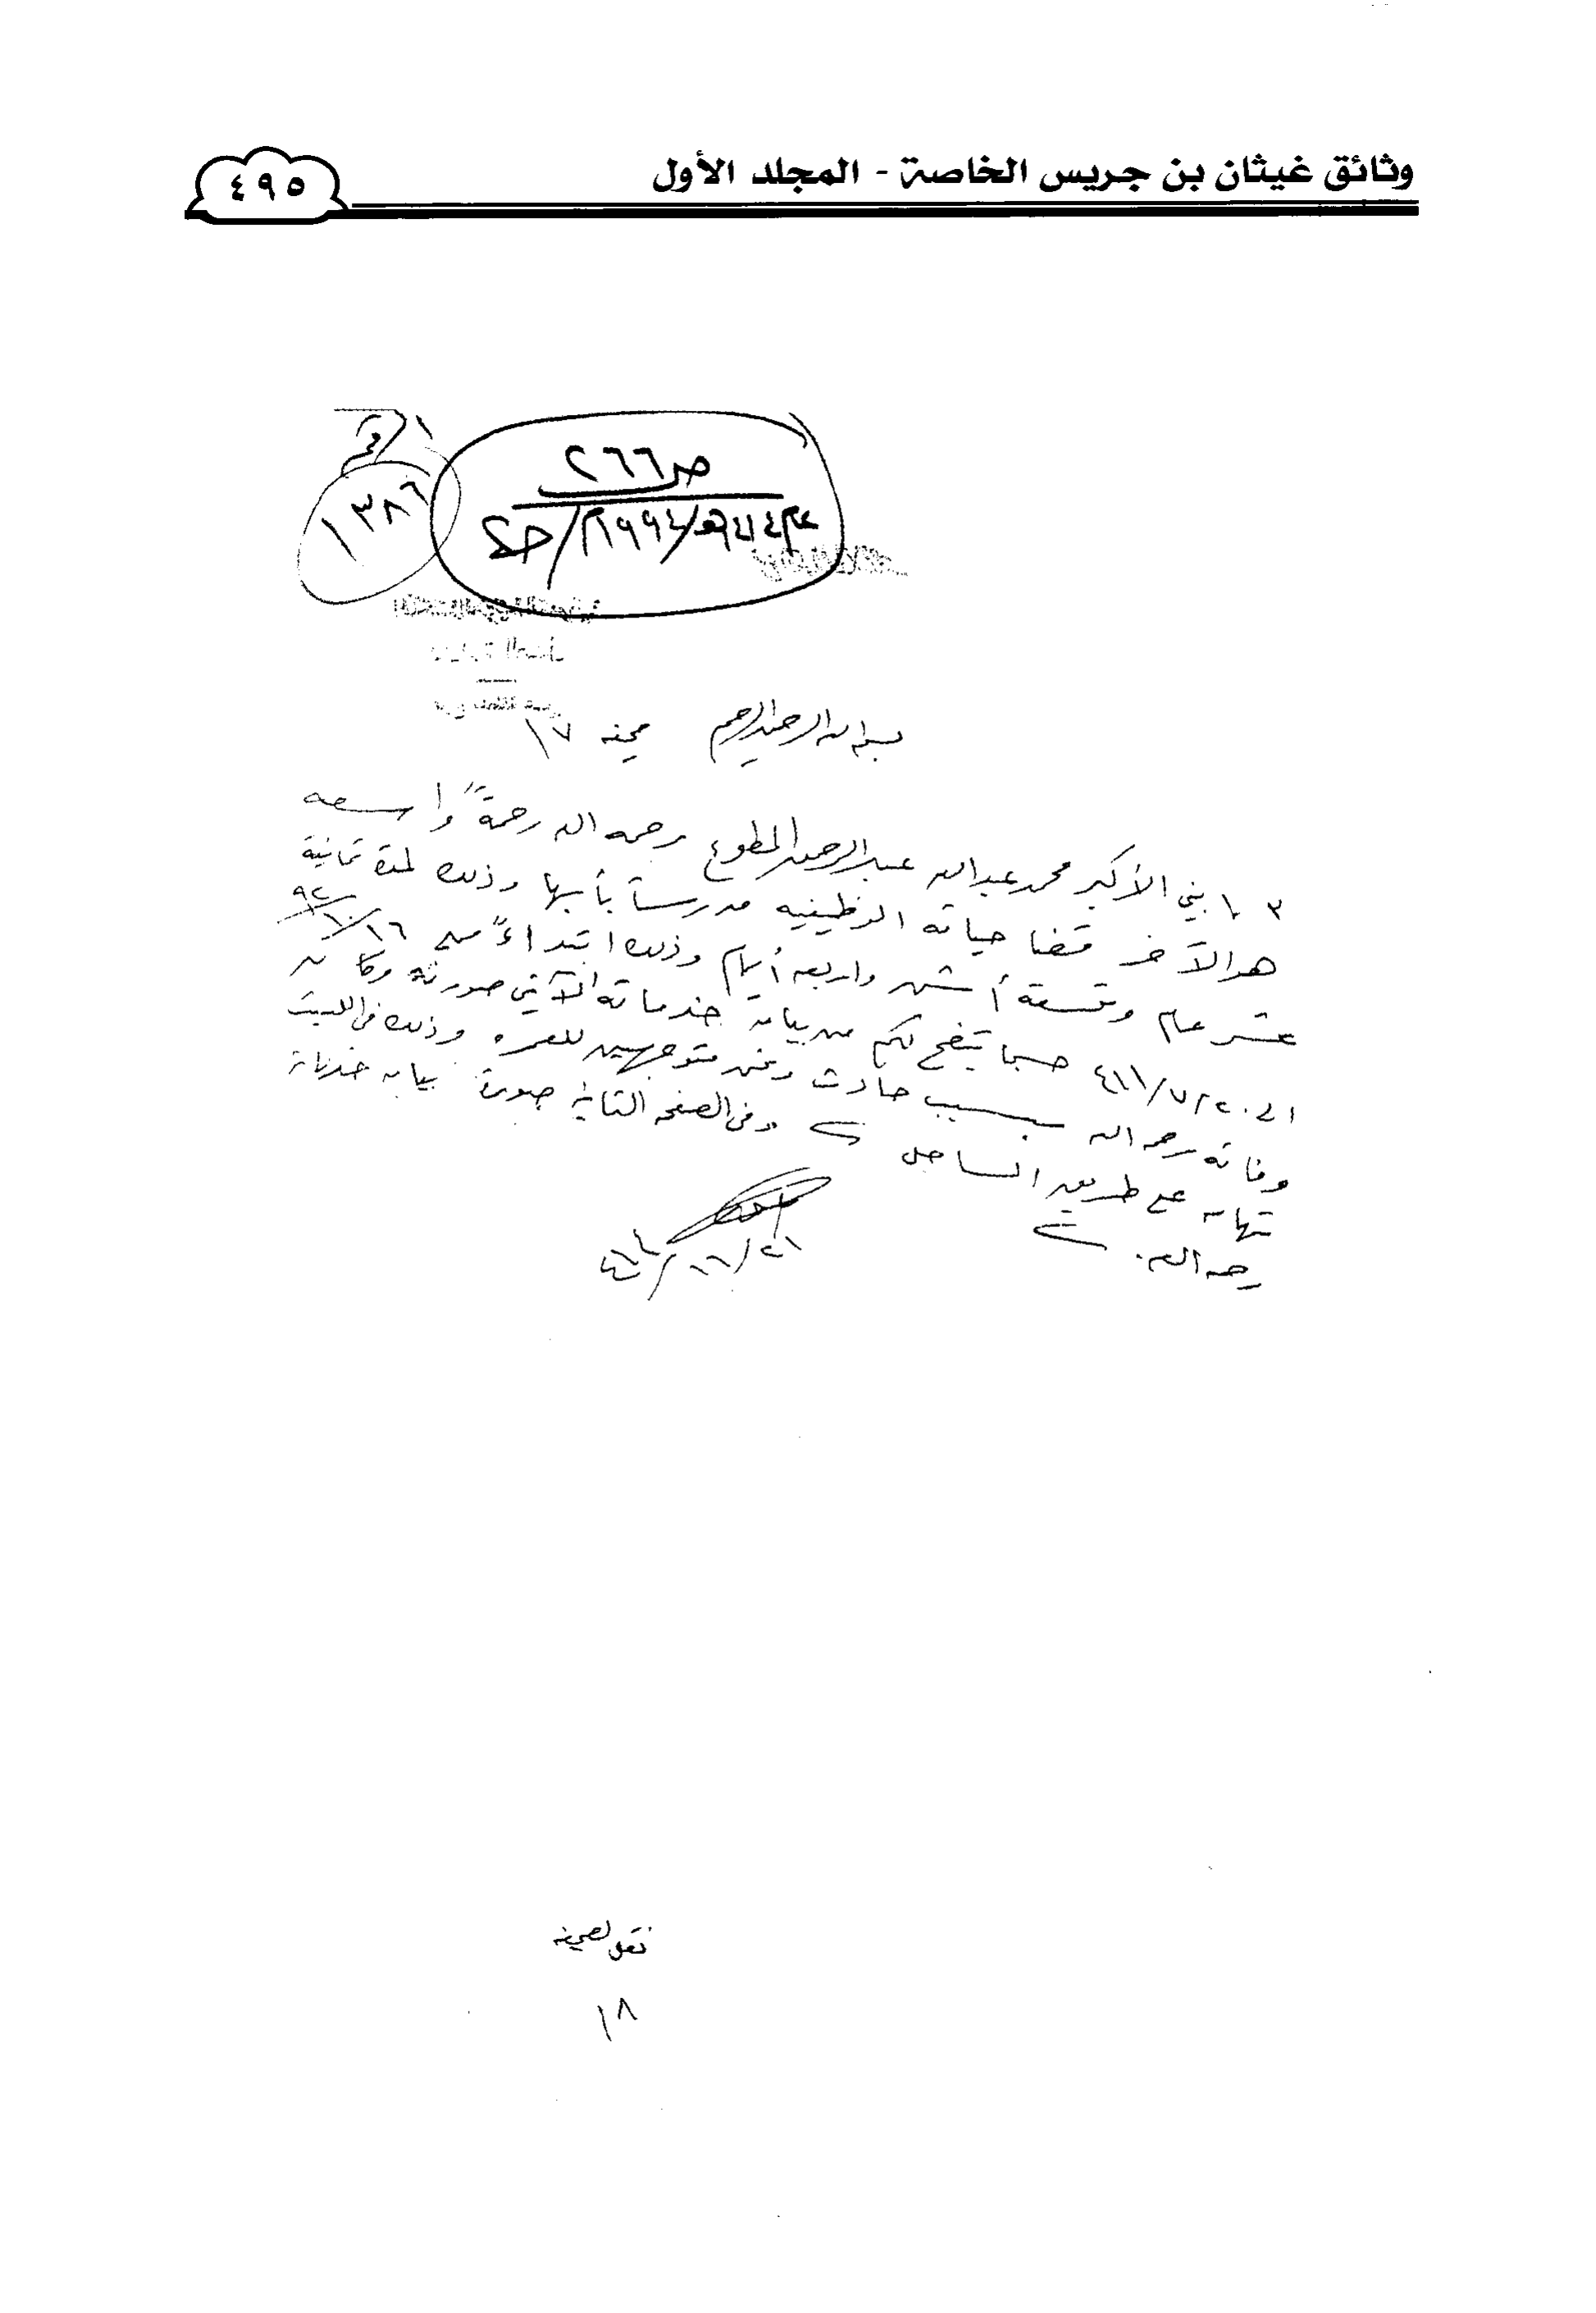 وثائق غيثان بن جريس الخاصة - المجلد الأول
٤٩٥
الرقم
١٣٨٦
ص ٢٦٦
بسم الله الرحمن الرحيم صحيفه ١٧
٣ ـ ابني الأكبر محمد عبدالله عبدالرحمن المطوع رحمه الله رحمةً واسعه
هو الآخر قضا حياته الوظيفيه مدرساً بأبها وذلك لمدة ثمانية
عشر عام وتسعة أشهر واربعه أيام وذلك ابتداءً من ١٦/١٠/٩٢
الى ٢٠/٧/٤١١ حسبما يتضح لكم من بيان خدماته الآتي صورته وكان
وفاته رحمه الله بسبب حادث ونحن متوجهين للعمره وذلك في الليث
تهامه على طريق الساحل وفي الصفحه التاليه صورة بيان خدماته
رحمه الله.
نقل لصحيفه
١٨